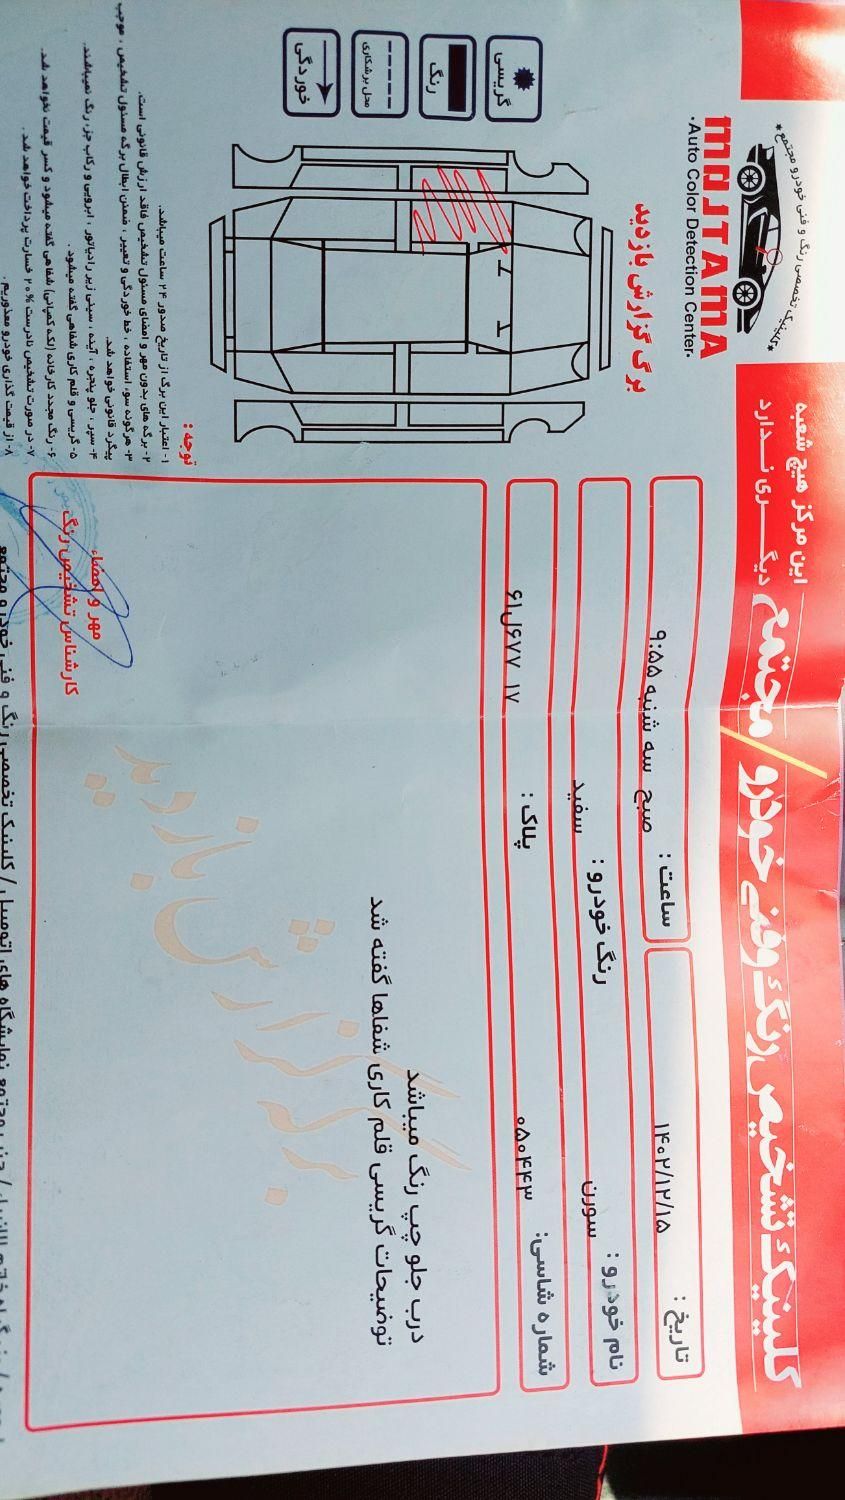 کلینیک تشخیص رنگ و فنی خودرو مجتمع
این مرکز هیچ شعبه
دیگـــری نــدارد
*کلینیک تخصصی رنگ و فنی خودرو مجتمع*
MOJTAMA
.Auto Color Detection Center.
برگ گزارش بازدید
تاریخ : ۱۴۰۲/۱۲/۱۵
ساعت : صبح سه شنبه ۹:۵۵
نام خودرو : سورن
رنگ خودرو : سفید
شماره شاسی: ۰۵۰۴۴۳
پلاک : ۶۱ل۶۷۷ ۱۷
درب جلو چپ رنگ میباشد
توضیحات گریسی قلم کاری شفاها گفته شد
برگه گزارش بازدید
گریسی
رنگ
محل برشکاری
خوردگی
توجه :
۱- اعتبار این برگ از تاریخ صدور ۲۴ ساعت میباشد.
۲- برگه های بدون مهر و امضای مسئول تشخیص فاقد ارزش قانونی است.
۳- هرگونه سوء استفاده ، خط خوردگی و تغییر ، ضمن ابطال برگه مسئول تشخیص ، موجب
پیگرد قانونی خواهد شد.
۴- سپر ، جلو پنجره ، آینه ، سینی زیر رادیاتور ، ابرویی و رکاب جزء رنگ نمیباشند.
۵- گریسی و قلم کاری شفاهی گفته میشود.
۶- رنگ مجدد کارخانه (لکه کمپانی) شفاهی گفته میشود و کسر قیمت نخواهد شد.
۷- در صورت تشخیص نادرست ۲۰% خسارت پرداخت خواهد شد.
۸- از قیمت گذاری خودرو معذوریم.
مهر و امضاء
کارشناس تشخیص رنگ